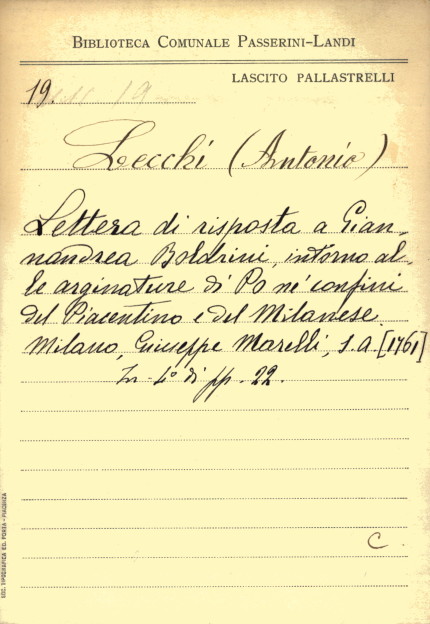 BIBLIOTECA COMUNALE PASSERINI-LANDI
LASCITO PALLASTRELLI
19.
Lecchi (Antonio)
Lettera di risposta a Gian-
nandrea Boldrini, intorno al-
le arginature di Po ne' confini
del Piacentino e del Milanese.
Milano, Giuseppe Marelli, s. a. [1761]
In-4° di pp. 22.
C.
SOC. TIPOGRAFICA ED. PORTA - PIACENZA